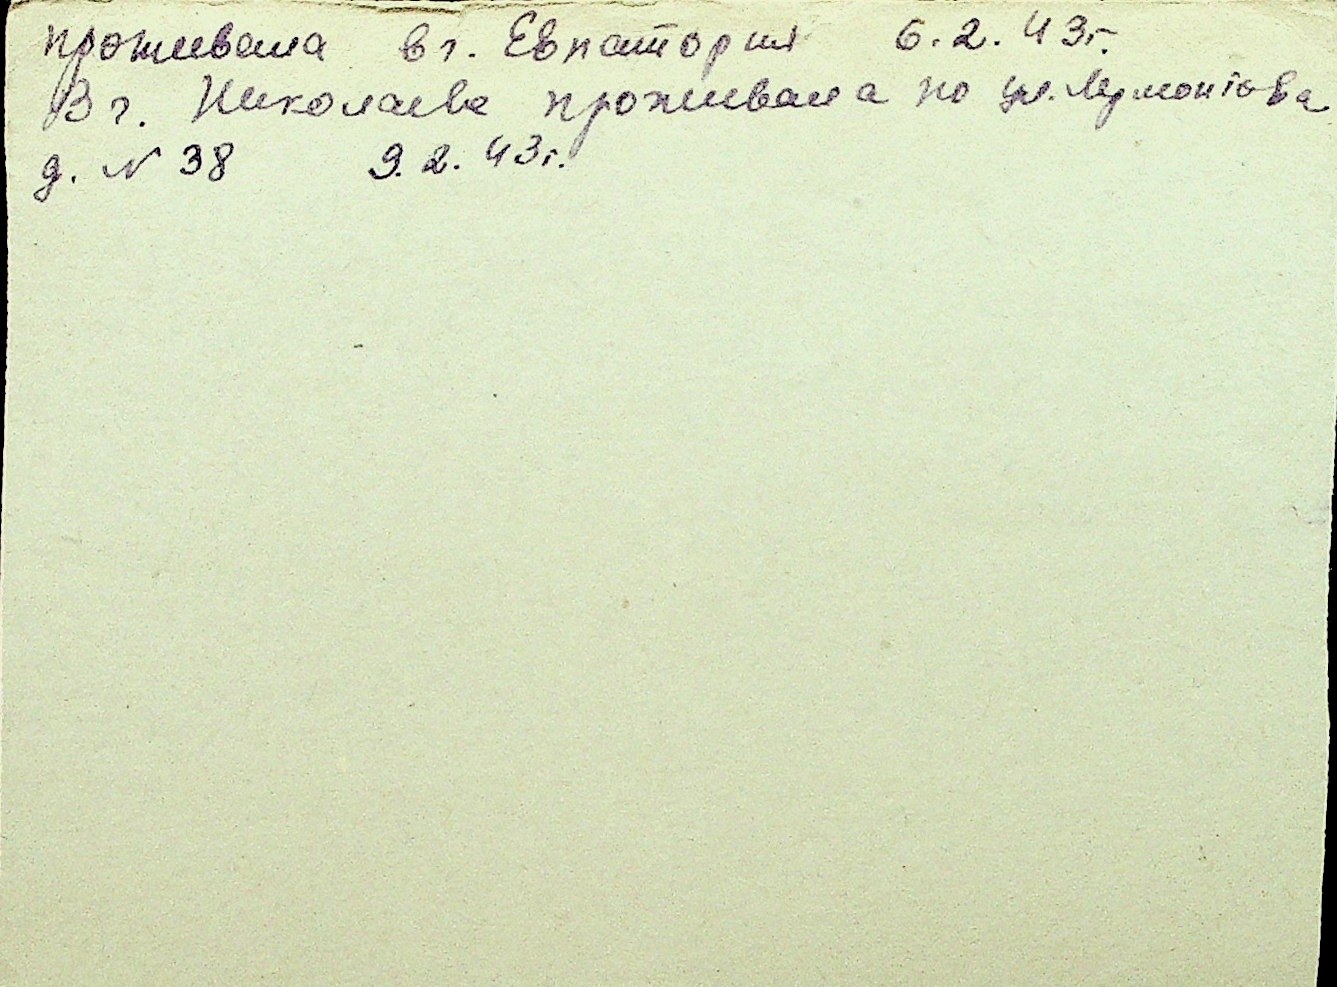 проживала в г. Евпатория 6.2.43г.
В г. Николаеве проживала по ул. Лермонтова
д. № 38 9.2.43г.